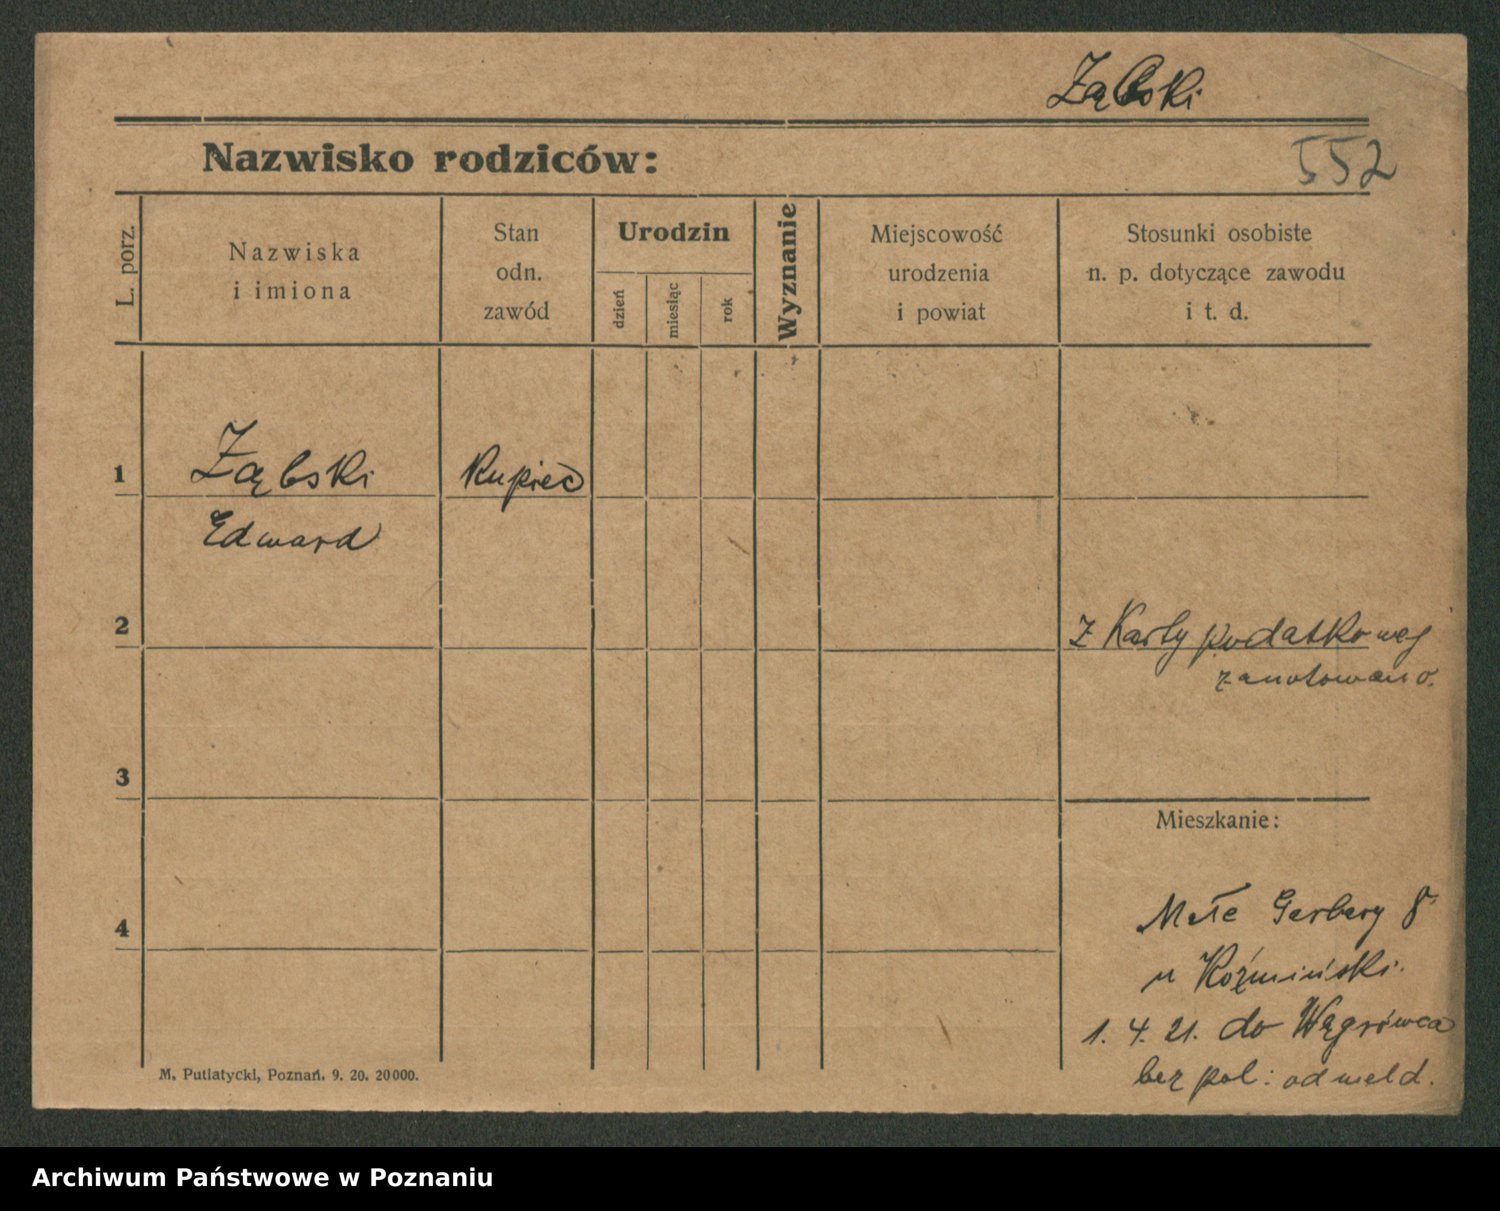 Ząbski
Nazwisko rodziców:
552
L. porz.
Nazwiska
i imiona
Stan
odn.
zawód
Urodzin
dzień
miesiąc
rok
Wyznanie
Miejscowość
urodzenia
i powiat
Stosunki osobiste
n. p. dotyczące zawodu
i t. d.
1
Ząbski
Kupiec
Edward
2
z Karty podatkowej
zanotowano.
3
Mieszkanie:
4
Małe Garbary 8
u Koźmiński.
1. 4. 21. do Wągrówca
bez pol: odmeld.
M. Putiatycki, Poznań. 9. 20. 20000.
Archiwum Państwowe w Poznaniu